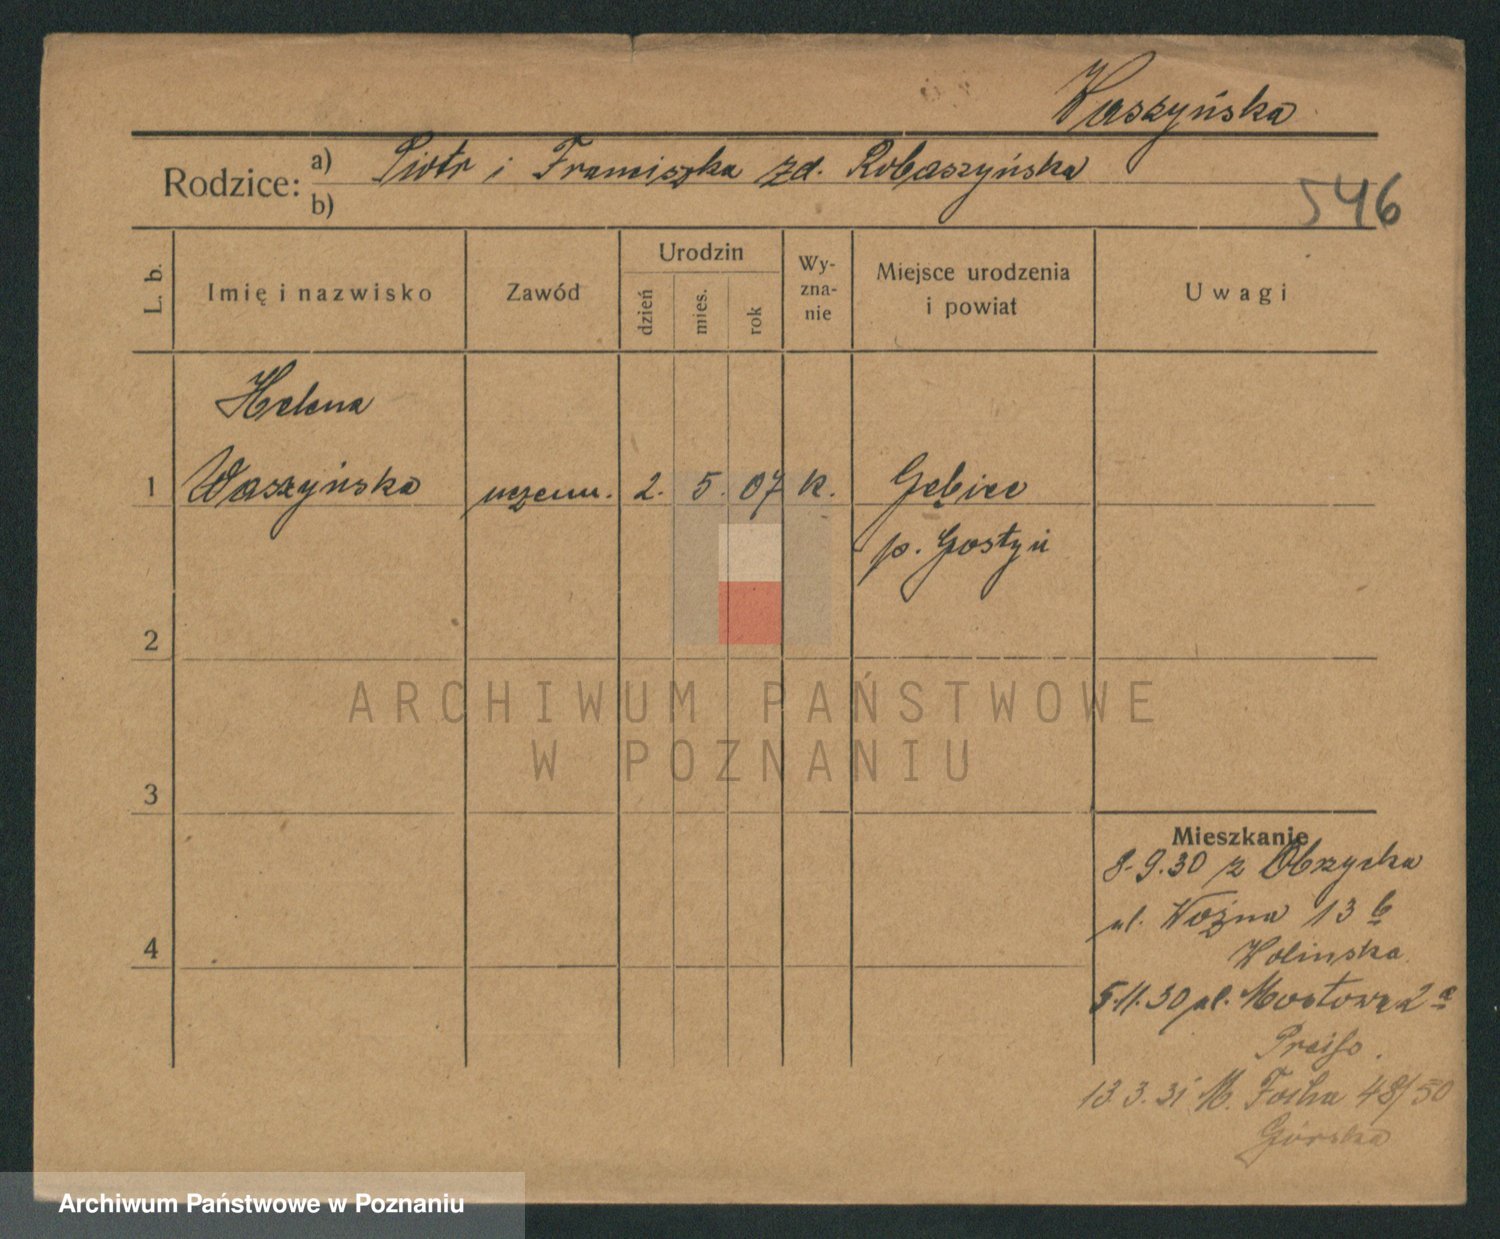 Waszyńska
Rodzice: a) Piotr i Franciszka zd. Robaszyńska
b)
546
L. b.
Imię i nazwisko
Zawód
Urodzin
dzień
mies.
rok
Wy-
zna-
nie
Miejsce urodzenia
i powiat
Uwagi
Helena
1 Waszyńska uczenn. 2. 5. 07 k. Gębice
p. Gostyń
2
3
4
Mieszkanie
8.9.30 z Obrzycka
ul. Woźna 13 b
Wolinska
5.11.30 ul. Mostowa 2 a
13.3.31 M. Focha 48/50
Górska
ARCHIWUM PAŃSTWOWE
W POZNANIU
Archiwum Państwowe w Poznaniu